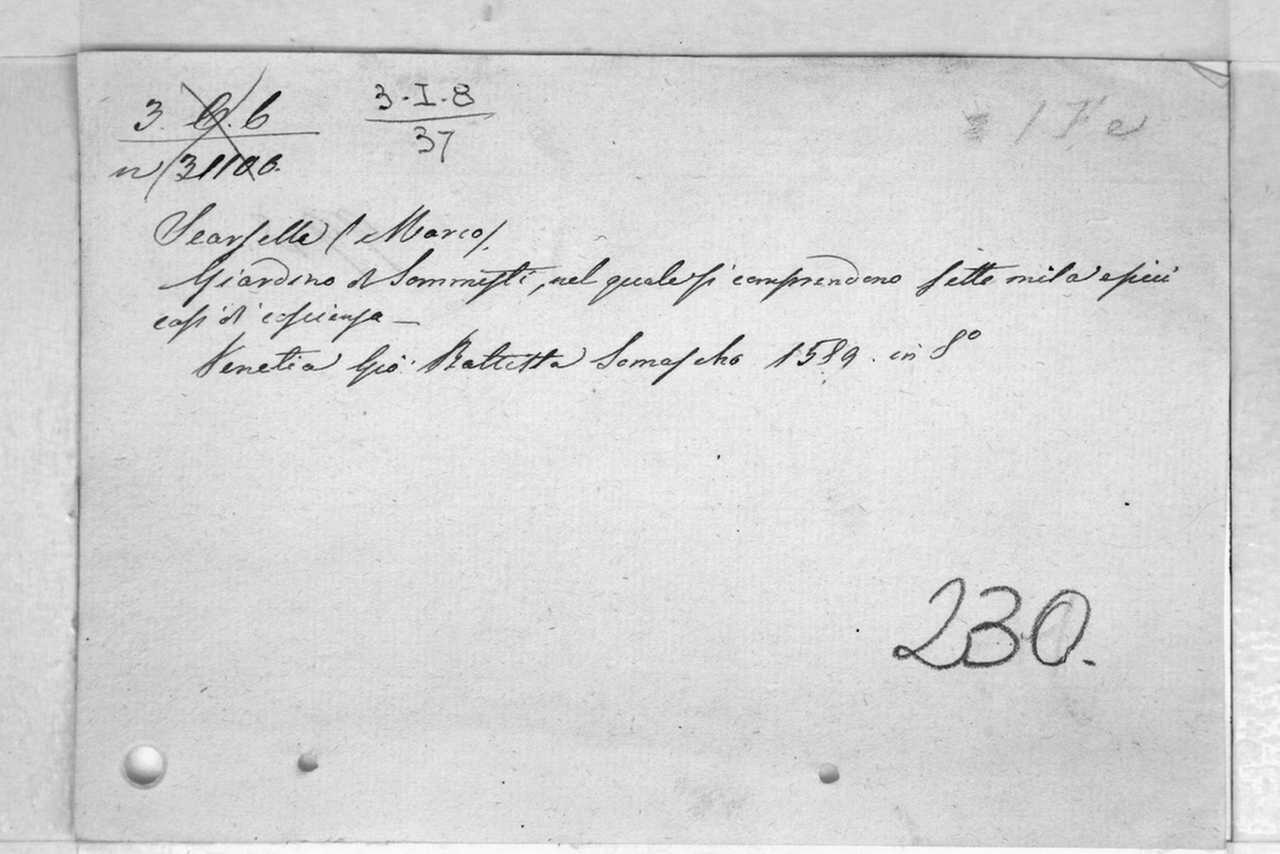 3. G. 6
3-I-8
37
n 31100.
Scarsella (Marco).
Giardino di Sommisti, nel quale si comprendono sette mila e più
casi di cosciensa —
Venetia Gio: Battista Somascho 1589. in 8°
230.